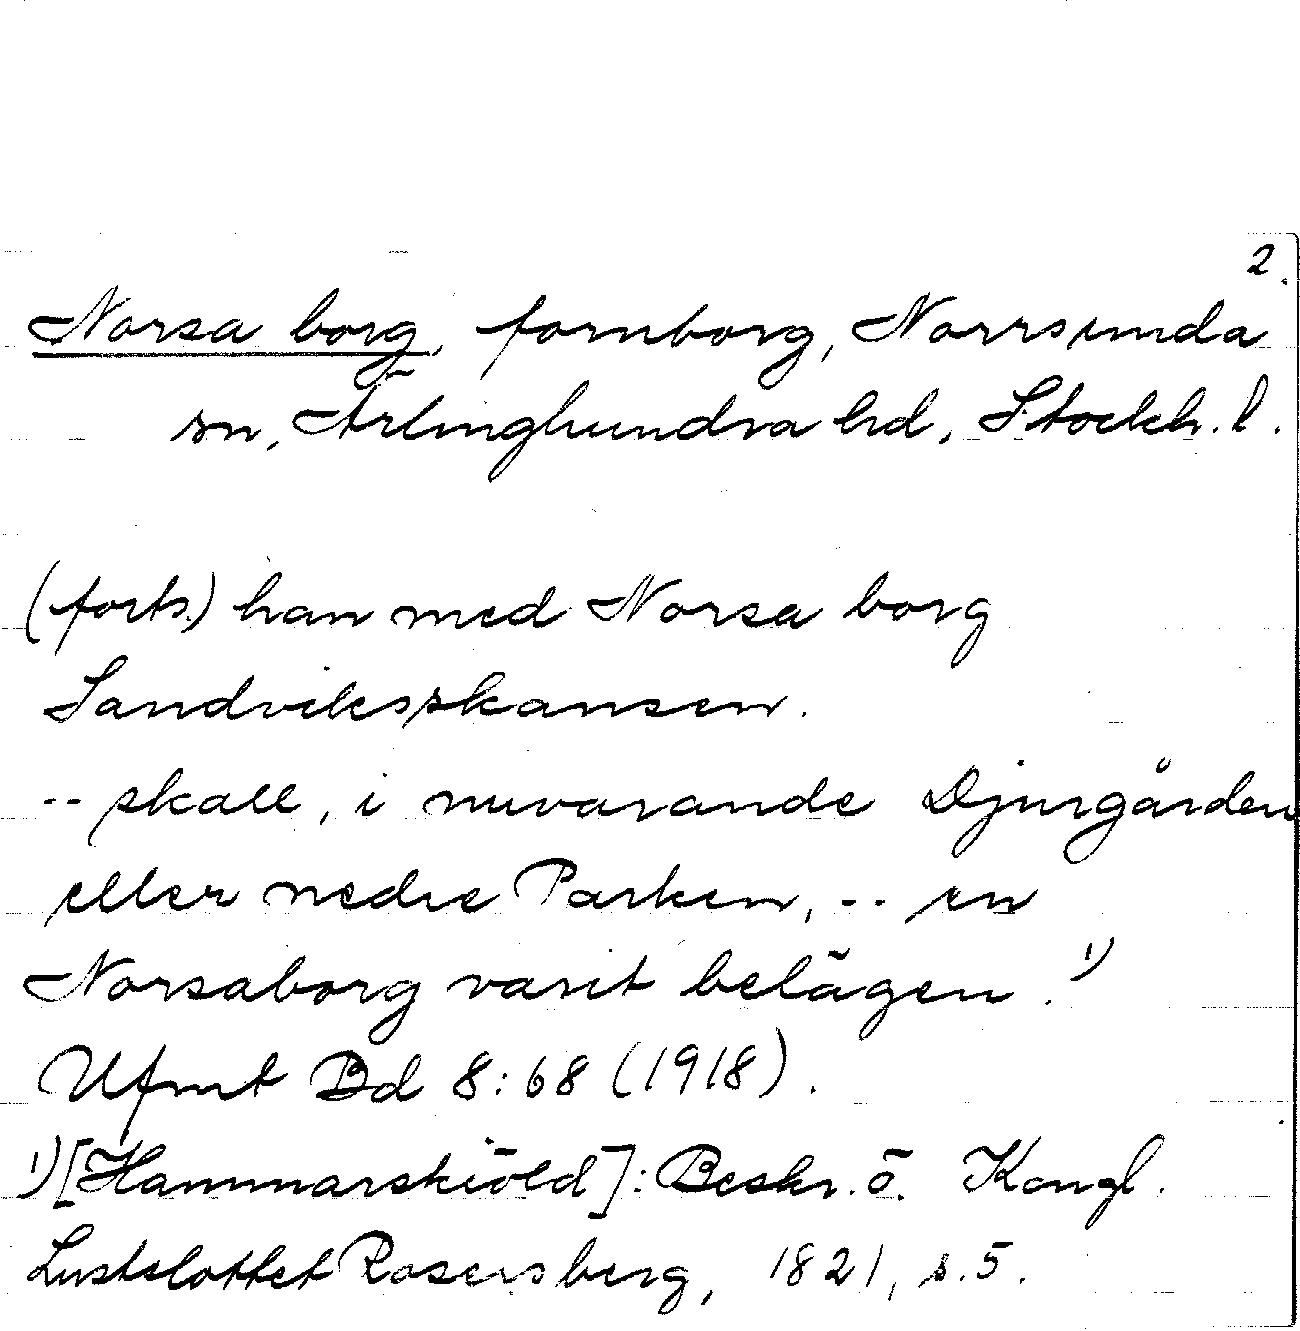 2.
Norsa borg, fornborg, Norrsunda
sn, Ärlinghundra hd, Stockh. l.
(forts.) han med Norsa borg
Sandviksskansen.
-- skall, i nuvarande Djurgården
eller nedre Parken, -- en
Norsaborg varit belägen.¹⁾
Ufmt Bd 8:68 (1918).
¹⁾[Hammarskiöld]: Beskr. ö. Kongl.
Lustslottet Rosersberg, 1821, s.5.